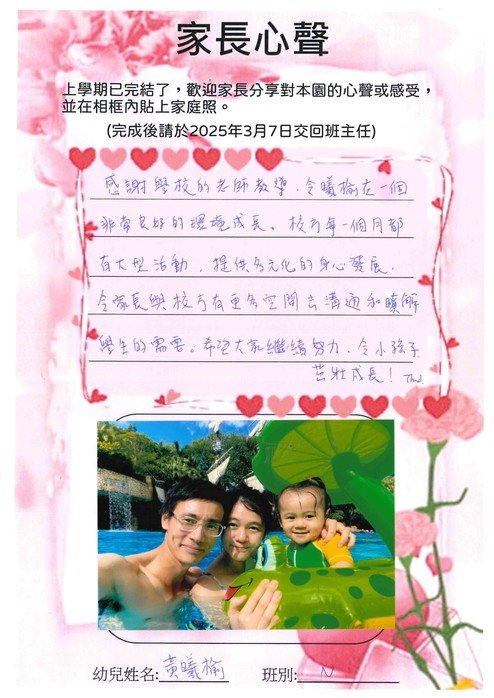 家長心聲
上學期已完結了，歡迎家長分享對本園的心聲或感受，
並在相框內貼上家庭照。
(完成後請於2025年3月7日交回班主任)
感謝學校的老師教導，令曦榆在一個
非常良好的環境成長。校方每一個月都
有大型活動，提供多元化的身心發展，
令家長與校方有更多空間去溝通和瞭解
學生的需要。希望大家繼續努力，令小孩子
茁壯成長！
幼兒姓名: 黃曦榆 班別: N